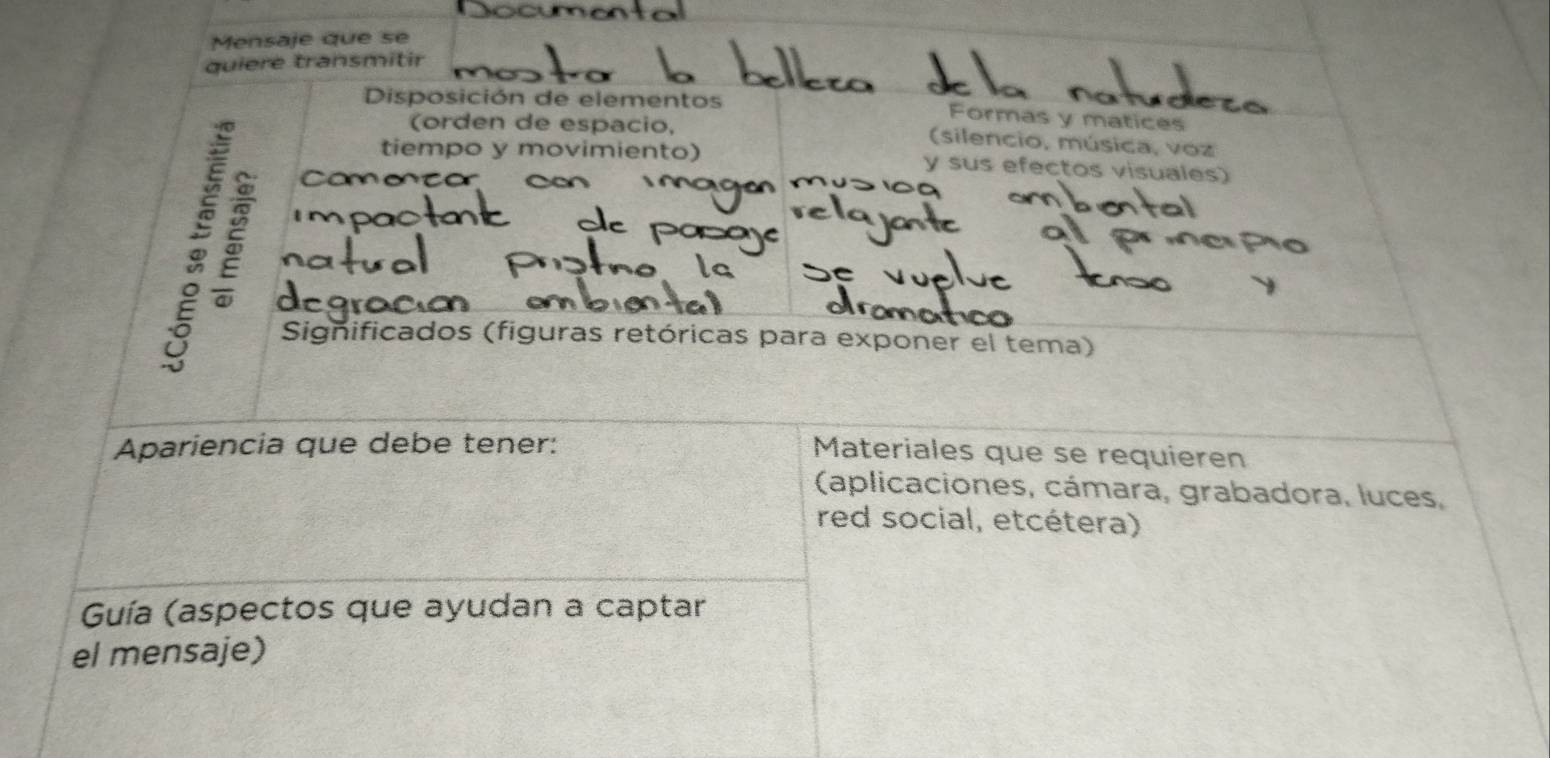 Documental
Mensaje que se
quiere transmitir
mostra la belleza de la naturaleza
¿Cómo se transmitirá
el mensaje?
Disposición de elementos
(orden de espacio,
tiempo y movimiento)
comenzar con imagen
impactante de pasaje
natural pristino la
degracion ambiental
Formas y matices
(silencio, música, voz
y sus efectos visuales)
musica ambiental
relajante al principio
se vuelve tenso y
dramatico
Significados (figuras retóricas para exponer el tema)
Apariencia que debe tener:
Materiales que se requieren
(aplicaciones, cámara, grabadora, luces,
red social, etcétera)
Guía (aspectos que ayudan a captar
el mensaje)